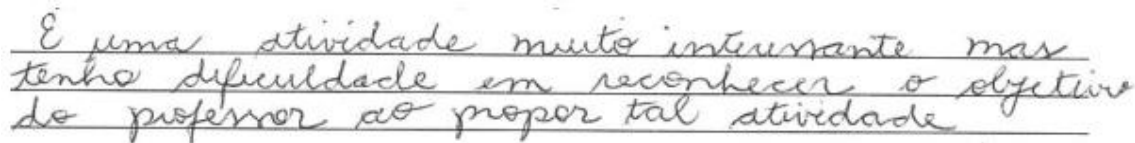 É uma atividade muito interessante mas
tenho dificuldade em reconhecer o objetivo
do professor ao propor tal atividade